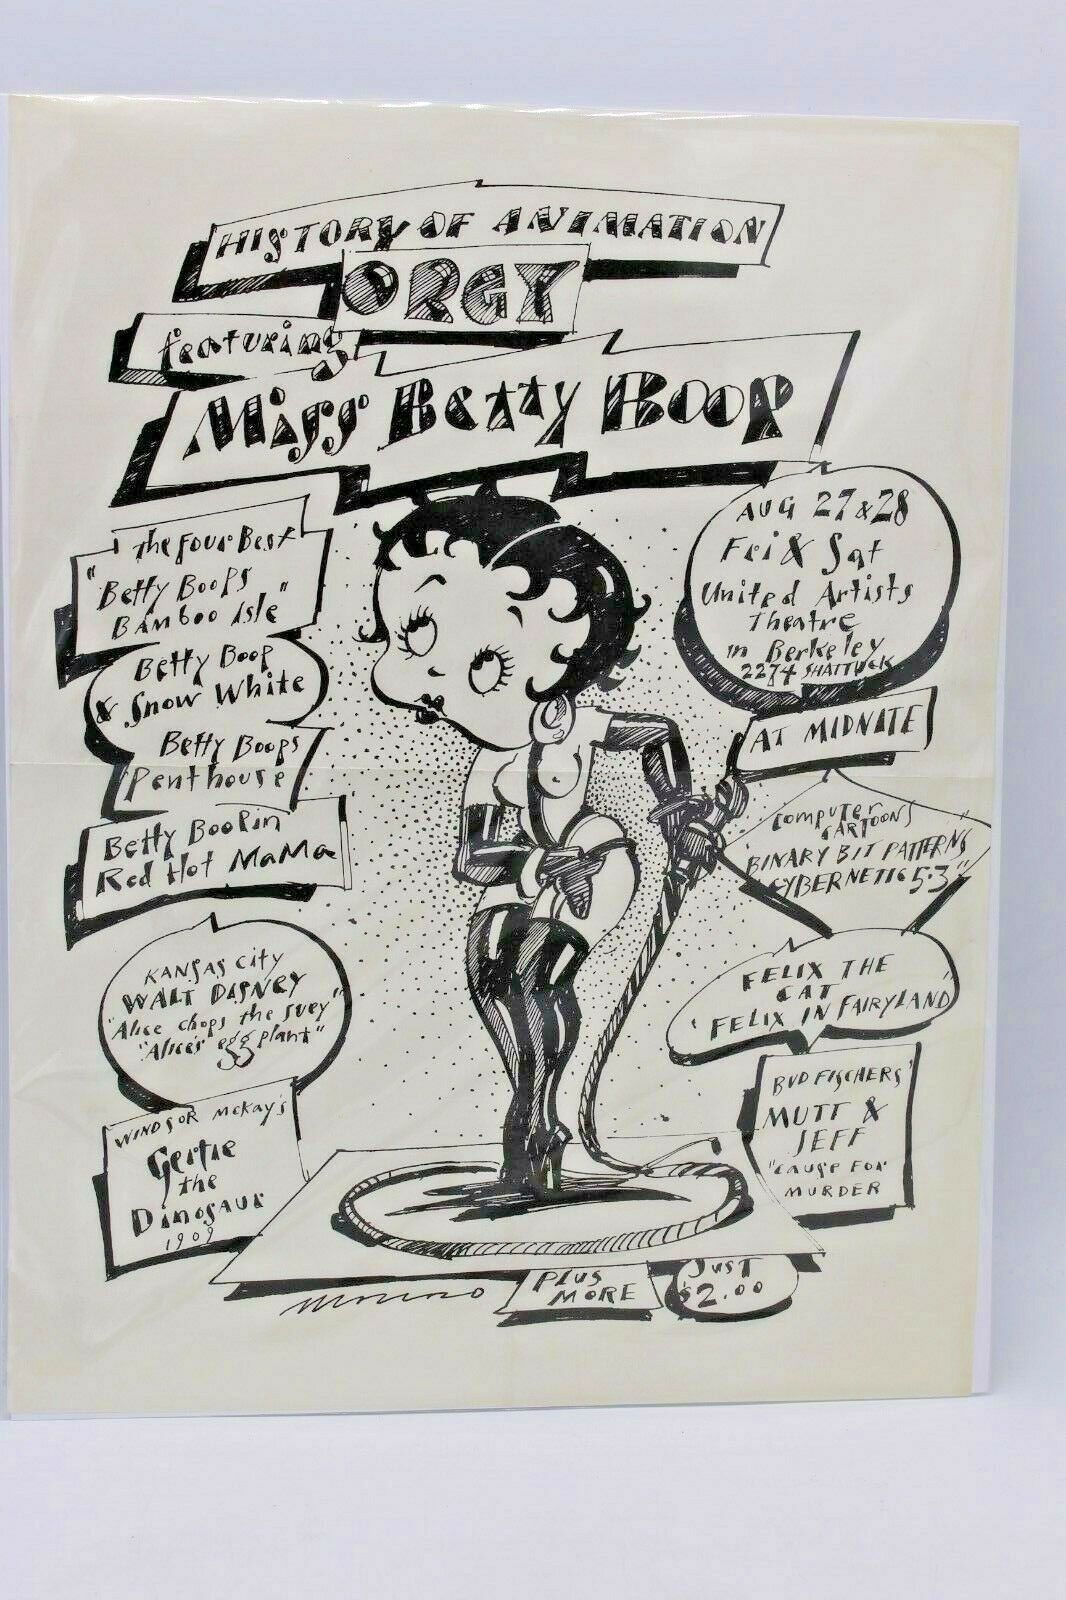 HISTORY OF ANIMATION
ORGY
featuring
Miss Betty Boop
The Four Best
"Betty Boops
Bamboo Isle"
Betty Boop
& Snow White
Betty Boops
Penthouse
Betty Boop in
Red Hot MaMa
KANSAS CITY
WALT DISNEY
"Alice chops the suey"
"Alice's egg plant"
WINDSOR McKay's
Gertie
the
Dinosaur
1909
AUG 27 & 28
Fri & Sat
United Artists
Theatre
in Berkeley
2274 SHATTUCK
AT MIDNITE
COMPUTER
CARTOONS
"BINARY BIT PATTERNS
CYBERNETIC 5.3"
FELIX THE
CAT
'FELIX IN FAIRYLAND'
BUD FISCHERS'
MUTT &
JEFF
"CAUSE FOR
MURDER
PLUS
MORE
JUST
$2.00